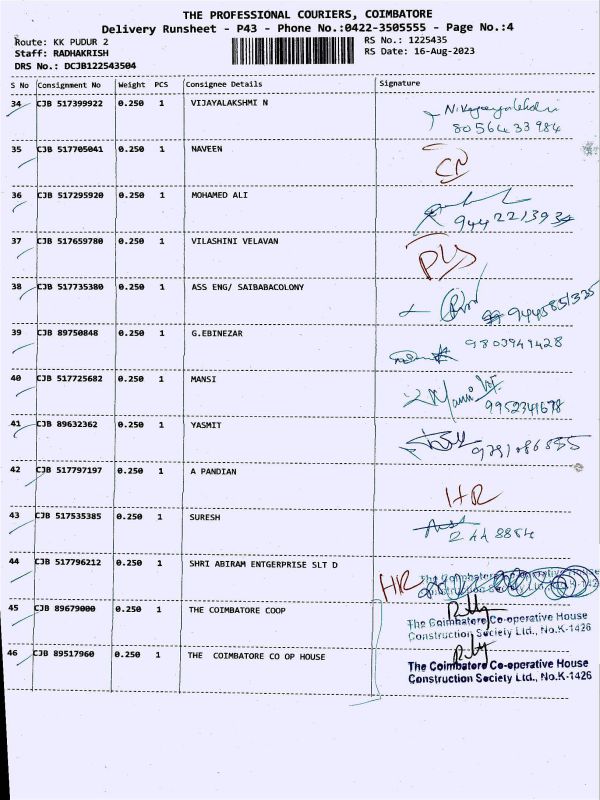 THE PROFESSIONAL COURIERS, COIMBATORE
Delivery Runsheet - P43 - Phone No.:0422-3505555 - Page No.:4
Route: KK PUDUR 2 RS No.: 1225435
Staff: RADHAKRISH RS Date: 16-Aug-2023
DRS No.: DCJB122543504
S No Consignment No Weight PCS Consignee Details Signature
34 CJB 517399922 0.250 1 VIJAYALAKSHMI N
8056433984
35 CJB 517705041 0.250 1 NAVEEN
36 CJB 517295920 0.250 1 MOHAMED ALI
37 CJB 517659780 0.250 1 VILASHINI VELAVAN
38 CJB 517735380 0.250 1 ASS ENG/ SAIBABACOLONY
9445851325
39 CJB 89750848 0.250 1 G.EBINEZAR
9803941428
40 CJB 517725682 0.250 1 MANSI
9952341678
41 CJB 89632362 0.250 1 YASMIT
42 CJB 517797197 0.250 1 A PANDIAN
HR
43 CJB 517535385 0.250 1 SURESH
44 CJB 517796212 0.250 1 SHRI ABIRAM ENTGERPRISE SLT D HR
45 CJB 89679000 0.250 1 THE COIMBATORE COOP
The Coimbatore Co-operative House
Construction Society Ltd., No.K-1426
46 CJB 89517960 0.250 1 THE COIMBATORE CO OP HOUSE
The Coimbatore Co-operative House
Construction Society Ltd., No.K-1426